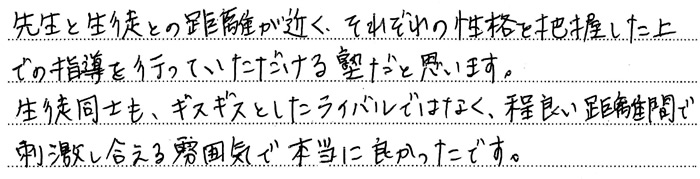 先生と生徒との距離が近く、それぞれの性格を把握した上
での指導を行っていただける塾だと思います。
生徒同士も、ギスギスとしたライバルではなく、程良い距離間で
刺激し合える雰囲気で本当に良かったです。